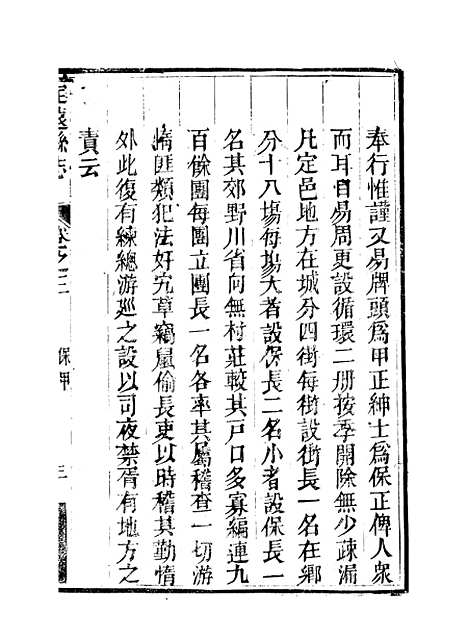 奉行惟謹又易牌頭爲甲正紳士爲保正俾人衆
而耳目易周更設循環二册按季開除無少疎漏
凡定邑地方在城分四街每街設街長一名在鄉
分十八塲每塲大者設保長二名小者設保長一
名其郊野川省向無村莊較其戸口多寡編連九
百餘團每團立團長一名各率其屬稽查一切游
惰匪類犯法奸宄草竊鼠偷長吏以時稽其勤惰
外此復有練總游廵之設以司夜禁胥有地方之
責云
定遠縣志
卷之三
保甲
三